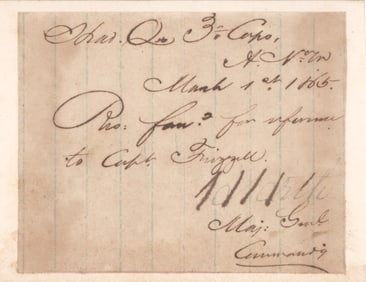 Head. Qu 3d Corps,
A. N. Va
March 1st, 1865.
Res. for reference
to Capt. Frizzell.
Maj: Genl
Command'g